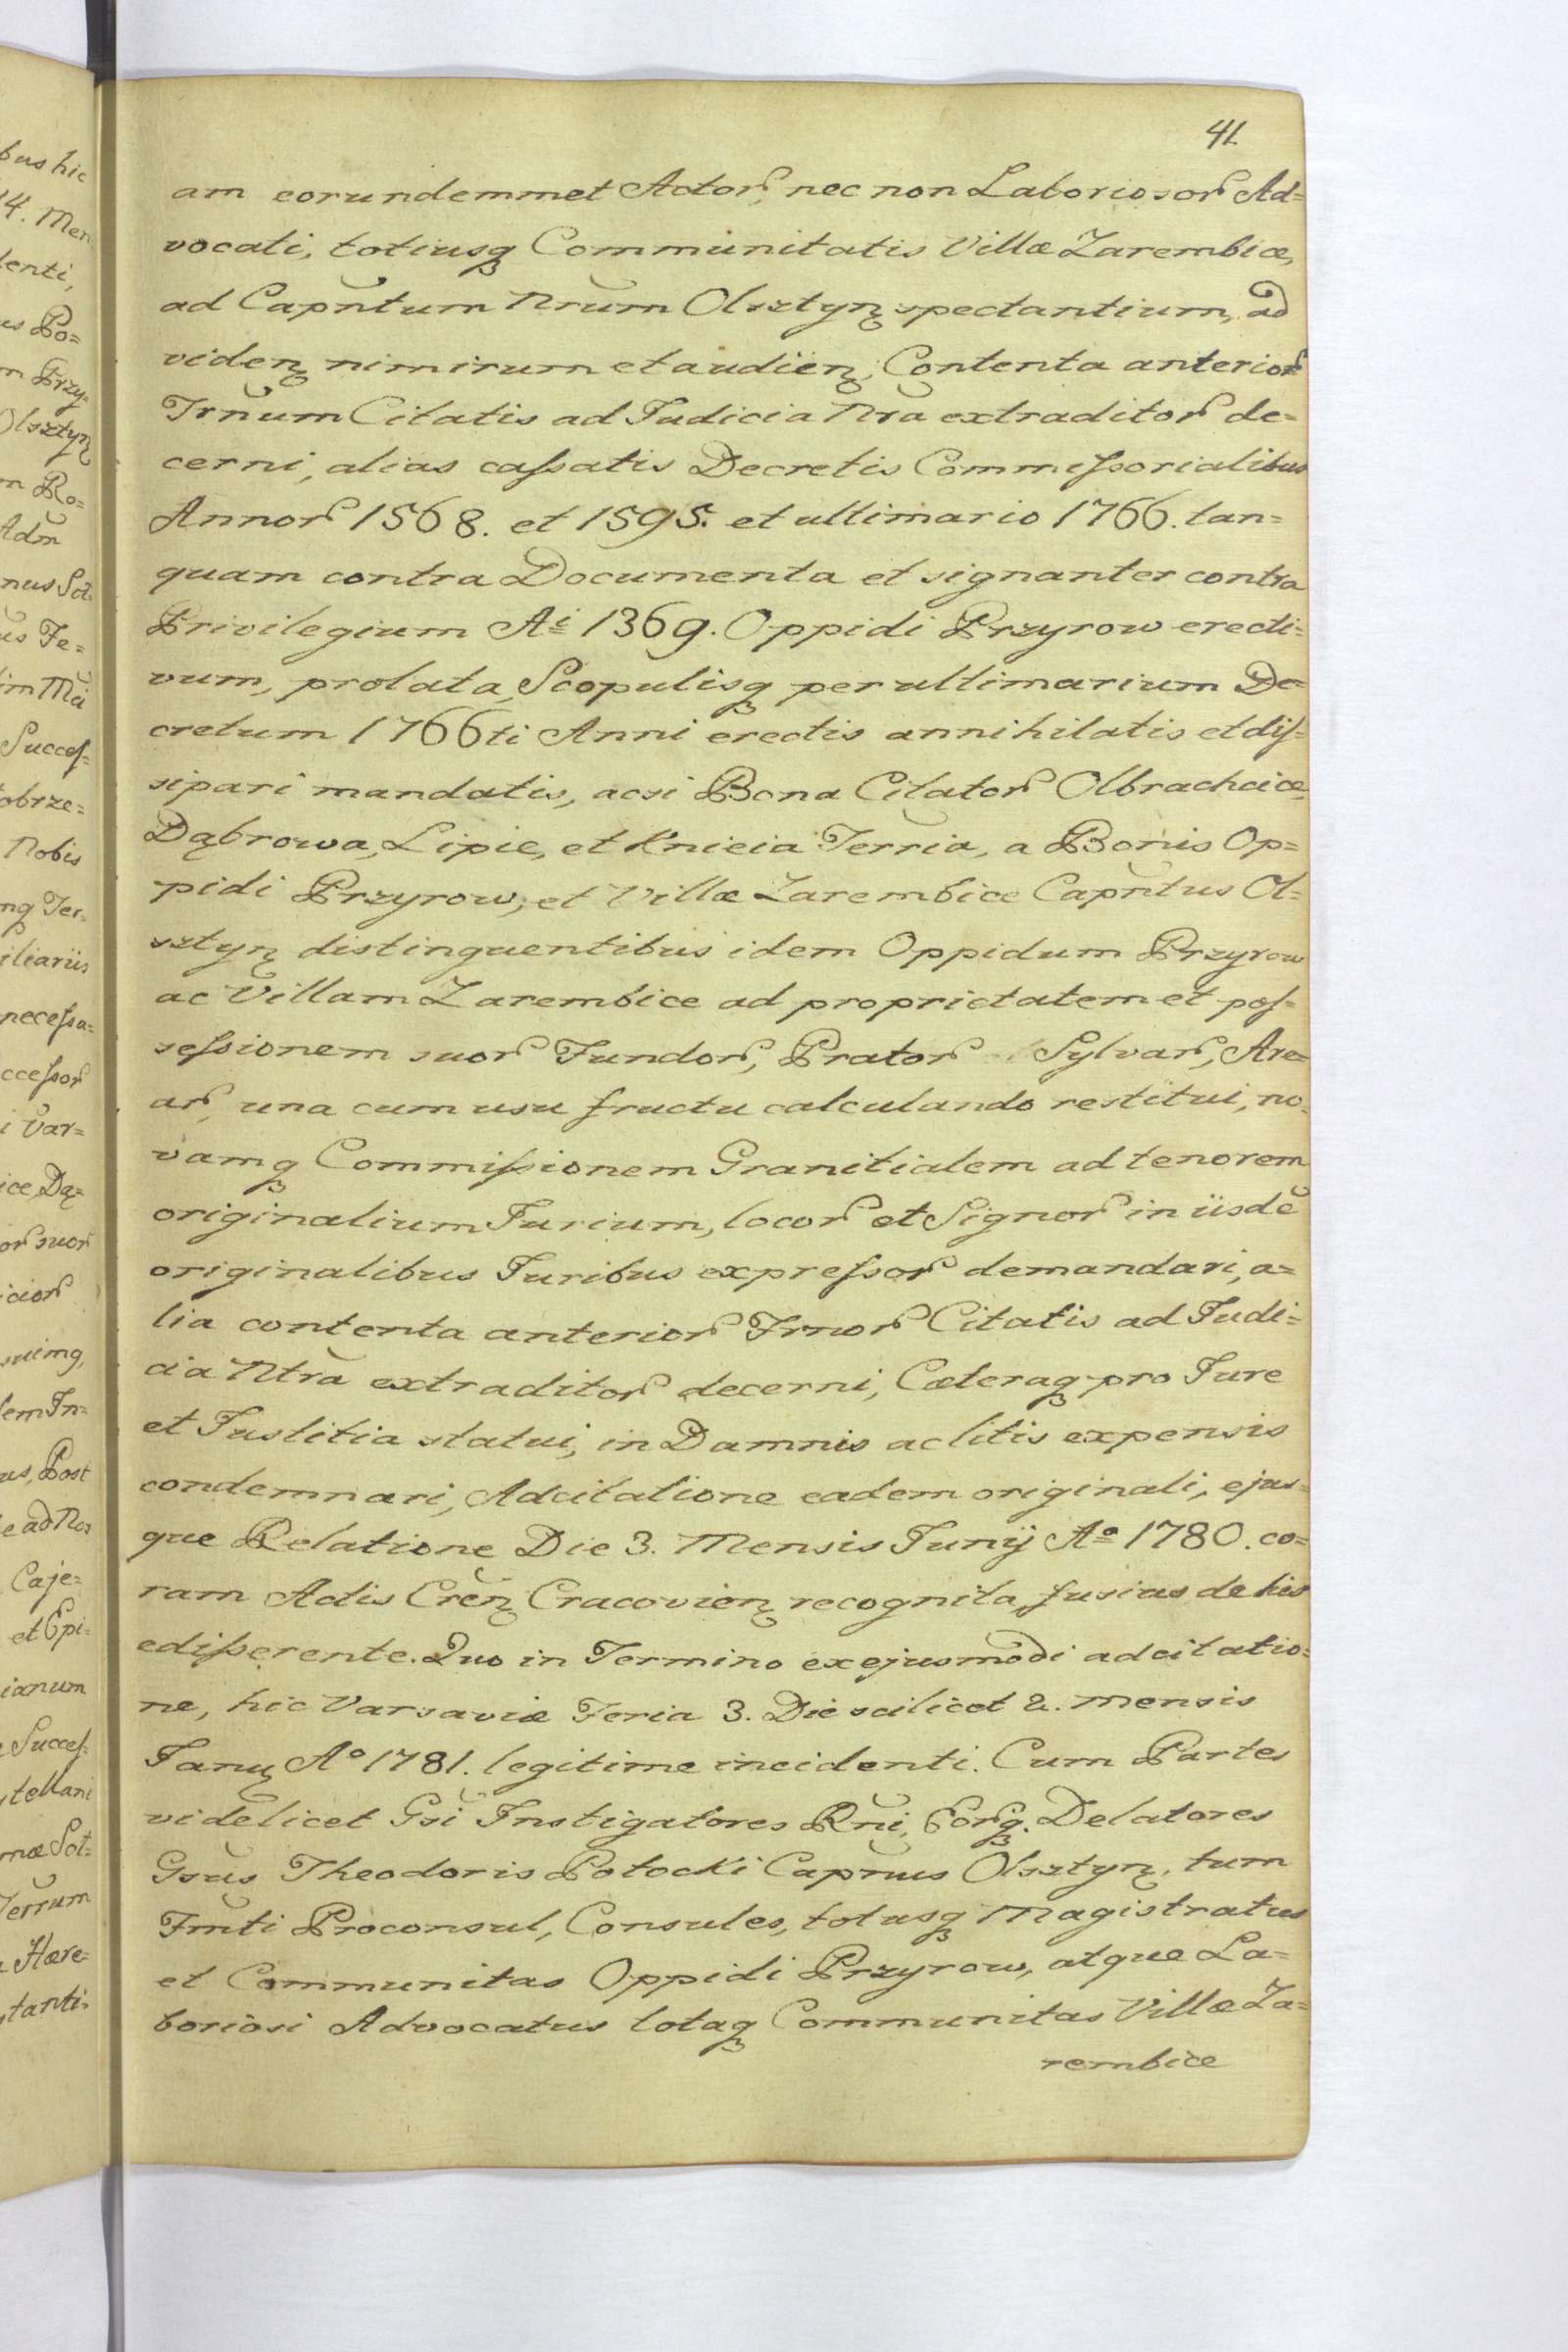 41
am eorundemmet Actorꝝ, nec non Laboriosorꝝ Ad=
vocati, totiusqꝫ Communitatis Villæ Zarembice,
ad Capn̄tum Nrūm Olsztynꝫ spectantium, ad
videnꝫ nimirum et audienꝫ, Contenta anteriorꝝ
Trn̄um Citatis ad Judicia Nrā extraditorꝝ de=
cerni, alias caſsatis Decretis Commiſsorialibus
Annorꝝ 1568. et 1595. et ultimario 1766. tan=
quam contra Documenta et signanter contra
Privilegium Ai 1369. Oppidi Przyrow erecti=
vum, prolata, Scopulisqꝫ per ultimarium De=
cretum 1766ti Anni erectis annihilatis et diſ=
sipari mandatis, acsi Bona Citatorꝝ Olbrachcice,
Dąbrowa, Lipie, et Knieia Terria, a Bonis Op=
pidi Przyrow, et Villæ Zarembice Capn̄tus Ol=
sztynꝫ distinguentibus idem Oppidum Przyrow
ac Villam Zarembice ad proprietatem et poſ=
seſsionem suorꝝ Fundorꝝ, Pratorꝝ Sylvarꝝ, Are=
arꝝ, una cum usu fructu calculando restitui, no=
vamqꝫ Commiſsionem Granitialem ad tenorem
originalium Jurium, locorꝝ et Signorꝝ in iisdē
originalibus Juribus expreſsorꝝ demandari, a=
lia contenta anteriorꝝ Trnorꝝ Citatis ad Judi=
cia Ntrā extraditorꝝ decerni, Cæteraqꝫ pro Jure
et Justitia statui, in Damnis ac litis expensis
condemnari, Adcitatione eadem originali, ejus=
que Relatione Die 3. Mensis Junij Ao 1780. co=
ram Actis Crēnꝫ Cracovienꝫ recognita, fusius de his
ediſserente. Quo in Termino ex ejusmodi adcitatio=
ne, hic Varsaviæ Feria 3. Die scilicet 2. mensis
Janųꝫ Ao 1781. legitime incidenti. Cum Partes
videlicet Gsi Instigatores Rni, Eorꝝqꝫ Delatores
Gsūs Theodoris Potocki Capn̄us Olsztynꝫ, tum
Fmti Proconsul, Consules, totusqꝫ Magistratus
et Communitas Oppidi Przyrow, atque La=
boriosi Advocatus totaqꝫ Communitas Villæ Za=
rembice